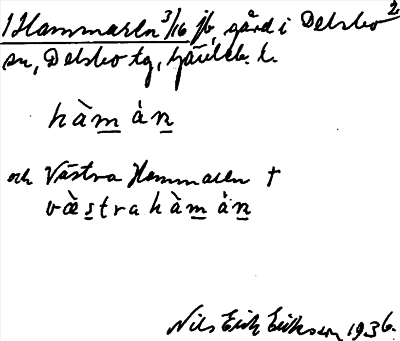 1 Hammaren 3/16 jb, gård i Delsbo 2
sn, Delsbo tg, Gävleb. l.
hàmȧn
och Västra Hammaren †
væstra hàmȧn
Nils Erik Eriksson 1936.